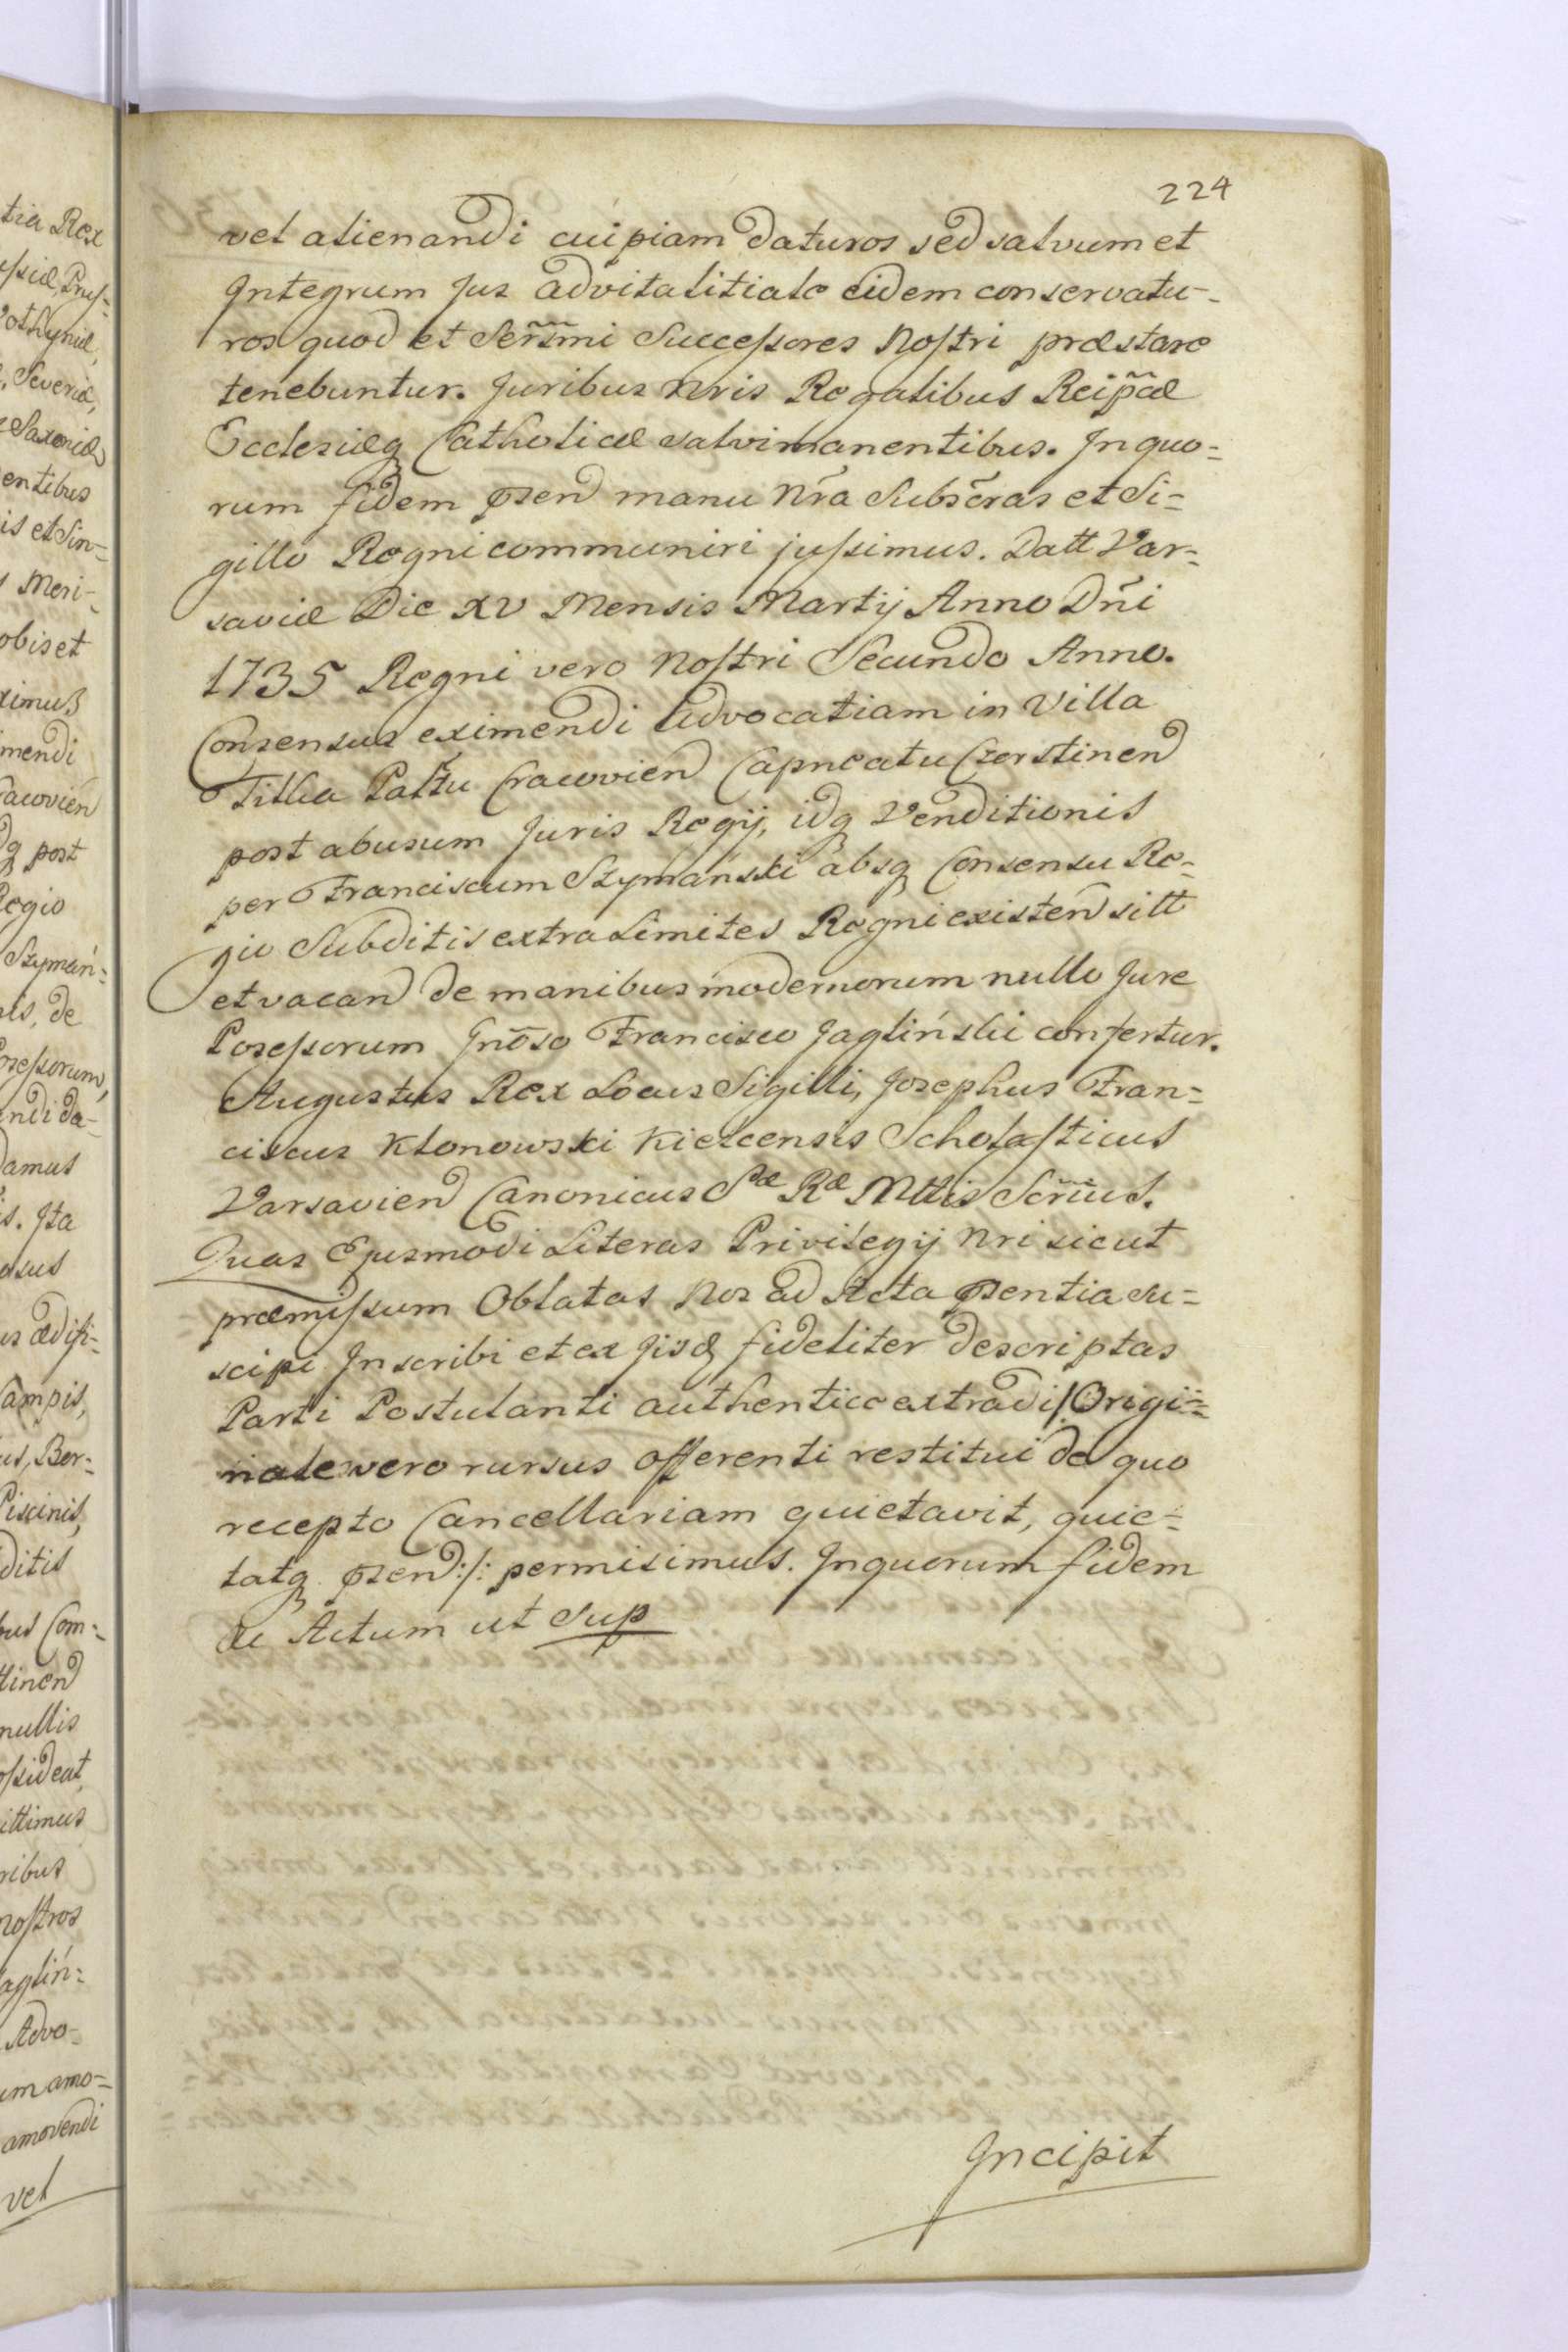 224
vel alienandi cuipiam daturos sed salvum et
Integrum Jus advitalitiale eidem conservatu-
ros quod et Serm̃mi Successores Nostri præstare
tenebuntur. Juribus nris Regalibus Reip̃æ
Ecclesiæq Catholicæ salvimanentibus. In quo=
rum fidem pꝛsen manu Nr̃a Subscr̃as et Si=
gillo Regni communiri jussimus. Datt Var=
saviæ Die XV Mensis Martij Anno Dñi
1735 Regni vero Nostri Secundo Anno.
Consensus eximendi Advocatiam in Villa
Tilka Paltu Cracovien Capneatu Czorstinen
post abusum Juris Regij, idq Venditionis
per Franciscum Szymański absq Consensu Re=
gio Subditis extra Limites Regni existen sitt
et vacan de manibus modernorum nullo Jure
Posessorum Gnõso Francisco Jaglińslii confertur.
Augustus Rex Locus Sigilli, Josephus Fran=
ciscus Klonowski Kielcensis Scholasticus
Varsavien Canonicus Sæ Ræ Mttis Scr̃ius.
Quas Ejusmodi Literas Privilegij Nri sicut
præmissum Oblatas Nos ad Acta pꝛsentia su=
scipi Inscribi et ex Jisd fideliter descriptas
Parti Postulanti authentice extradi /Origi=
nale vero rursus offerenti restitui de quo
recepto Cancellariam quietavit, quie=
tatq pꝛsen:/: permisimus. In quorum fidem
&c Actum ut Sup
Incipit
tia Rex
Prus=
Severiæ,
Saxoniæ
entibus
is et Sin=
Meri-
obis et
ximus
mendi
acovien
q post
Regio
Szymań=
de
Posessorum,
endi da-
Damus
is. Ita
us ædifi-
Campis,
us, Bor=
Piscinis,
ditis
bus Com=
tinen
nullis
ossideat,
ittimus
ribus
nostros
aglin=
Advo-
um amo=
amovendi
vel